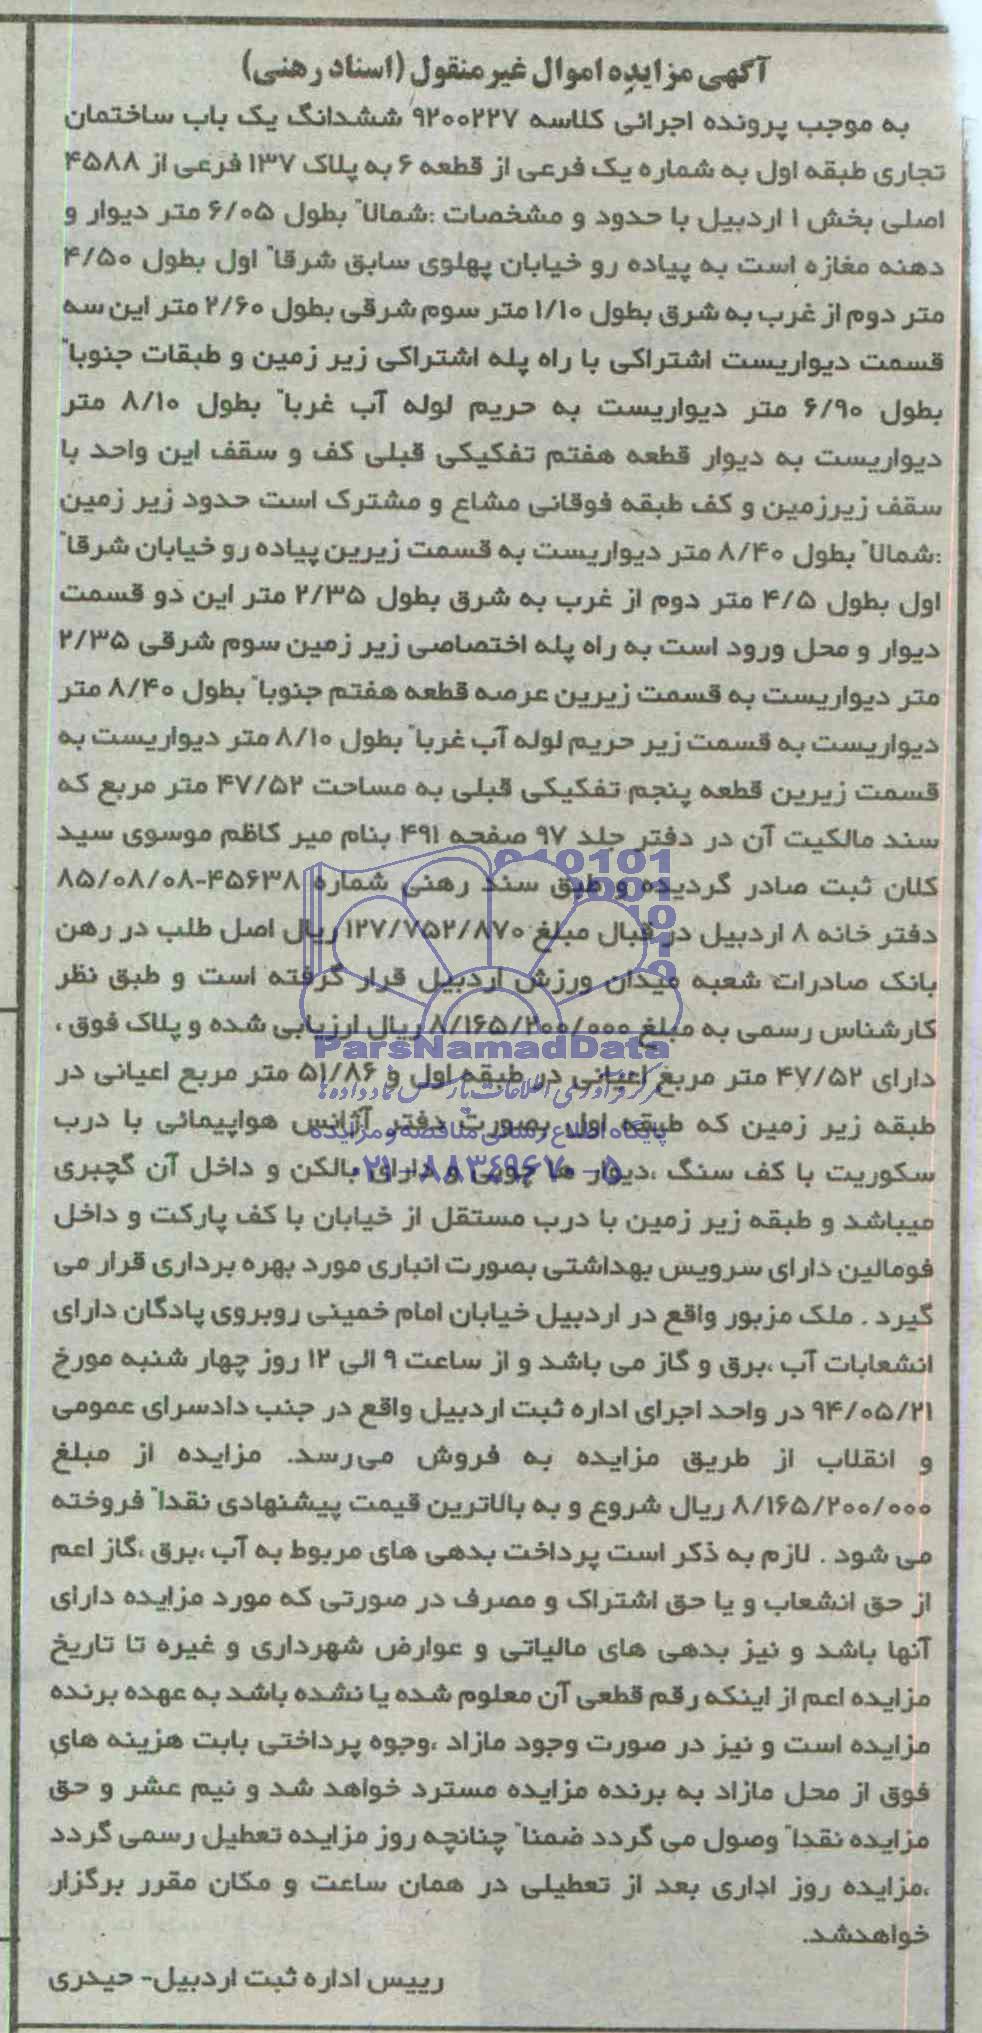 آگهی مزایده اموال غیر منقول (اسناد رهنی)
به موجب پرونده اجرائی کلاسه ۹۲۰۰۲۲۷ ششدانگ یک باب ساختمان
تجاری طبقه اول به شماره یک فرعی از قطعه ۶ به پلاک ۱۳۷ فرعی از ۴۵۸۸
اصلی بخش ۱ اردبیل با حدود و مشخصات :شمالاً بطول ۶/۰۵ متر دیوار و
دهنه مغازه است به پیاده رو خیابان پهلوی سابق شرقاً اول بطول ۴/۵۰
متر دوم از غرب به شرق بطول ۱/۱۰ متر سوم شرقی بطول ۲/۶۰ متر این سه
قسمت دیواریست اشتراکی با راه پله اشتراکی زیر زمین و طبقات جنوباً
بطول ۶/۹۰ متر دیواریست به حریم لوله آب غرباً بطول ۸/۱۰ متر
دیواریست به دیوار قطعه هفتم تفکیکی قبلی کف و سقف این واحد با
سقف زیرزمین و کف طبقه فوقانی مشاع و مشترک است حدود زیر زمین
:شمالاً بطول ۸/۴۰ متر دیواریست به قسمت زیرین پیاده رو خیابان شرقاً
اول بطول ۴/۵ متر دوم از غرب به شرق بطول ۲/۳۵ متر این دو قسمت
دیوار و محل ورود است به راه پله اختصاصی زیر زمین سوم شرقی ۲/۳۵
متر دیواریست به قسمت زیرین عرصه قطعه هفتم جنوباً بطول ۸/۴۰ متر
دیواریست به قسمت زیر حریم لوله آب غرباً بطول ۸/۱۰ متر دیواریست به
قسمت زیرین قطعه پنجم تفکیکی قبلی به مساحت ۴۷/۵۲ متر مربع که
سند مالکیت آن در دفتر جلد ۹۷ صفحه ۴۹۱ بنام میر کاظم موسوی سید
کلان ثبت صادر گردیده و طبق سند رهنی شماره ۴۵۶۳۸-۸۵/۰۸/۰۸
دفتر خانه ۸ اردبیل در قبال مبلغ ۱۲۷/۷۵۲/۸۷۰ ریال اصل طلب در رهن
بانک صادرات شعبه میدان ورزش اردبیل قرار گرفته است و طبق نظر
کارشناس رسمی به مبلغ ۸/۱۶۵/۲۰۰/۰۰۰ ریال ارزیابی شده و پلاک فوق ،
ParsNamadData
دارای ۴۷/۵۲ متر مربع اعیانی در طبقه اول و ۵۱/۸۶ متر مربع اعیانی در
مرکز فرآوری اطلاعات پارس نماد داده ها
طبقه زیر زمین که طبقه اول بصورت دفتر آژانس هواپیمائی با درب
پایگاه اطلاع رسانی مناقصه و مزایده
سکوریت با کف سنگ ،دیوار ها چوبی و دارای بالکن و داخل آن گچبری
۰۲۱-۸۸۳۴۹۶۷۰-۵
میباشد و طبقه زیر زمین با درب مستقل از خیابان با کف پارکت و داخل
فومالین دارای سرویس بهداشتی بصورت انباری مورد بهره برداری قرار می
گیرد . ملک مزبور واقع در اردبیل خیابان امام خمینی روبروی پادگان دارای
انشعابات آب ،برق و گاز می باشد و از ساعت ۹ الی ۱۲ روز چهار شنبه مورخ
۹۴/۰۵/۲۱ در واحد اجرای اداره ثبت اردبیل واقع در جنب دادسرای عمومی
و انقلاب از طریق مزایده به فروش می‌رسد. مزایده از مبلغ
۸/۱۶۵/۲۰۰/۰۰۰ ریال شروع و به بالاترین قیمت پیشنهادی نقداً فروخته
می شود . لازم به ذکر است پرداخت بدهی های مربوط به آب ،برق ،گاز اعم
از حق انشعاب و یا حق اشتراک و مصرف در صورتی که مورد مزایده دارای
آنها باشد و نیز بدهی های مالیاتی و عوارض شهرداری و غیره تا تاریخ
مزایده اعم از اینکه رقم قطعی آن معلوم شده یا نشده باشد به عهده برنده
مزایده است و نیز در صورت وجود مازاد ،وجوه پرداختی بابت هزینه های
فوق از محل مازاد به برنده مزایده مسترد خواهد شد و نیم عشر و حق
مزایده نقداً وصول می گردد ضمناً چنانچه روز مزایده تعطیل رسمی گردد
،مزایده روز اداری بعد از تعطیلی در همان ساعت و مکان مقرر برگزار
خواهدشد.
رییس اداره ثبت اردبیل- حیدری